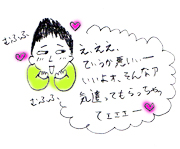 むふふ
え、ええ、
ていうか悪いー
いいよォ、そんなァ
気遣ってもらっちゃ、
てェェェー
むふふ